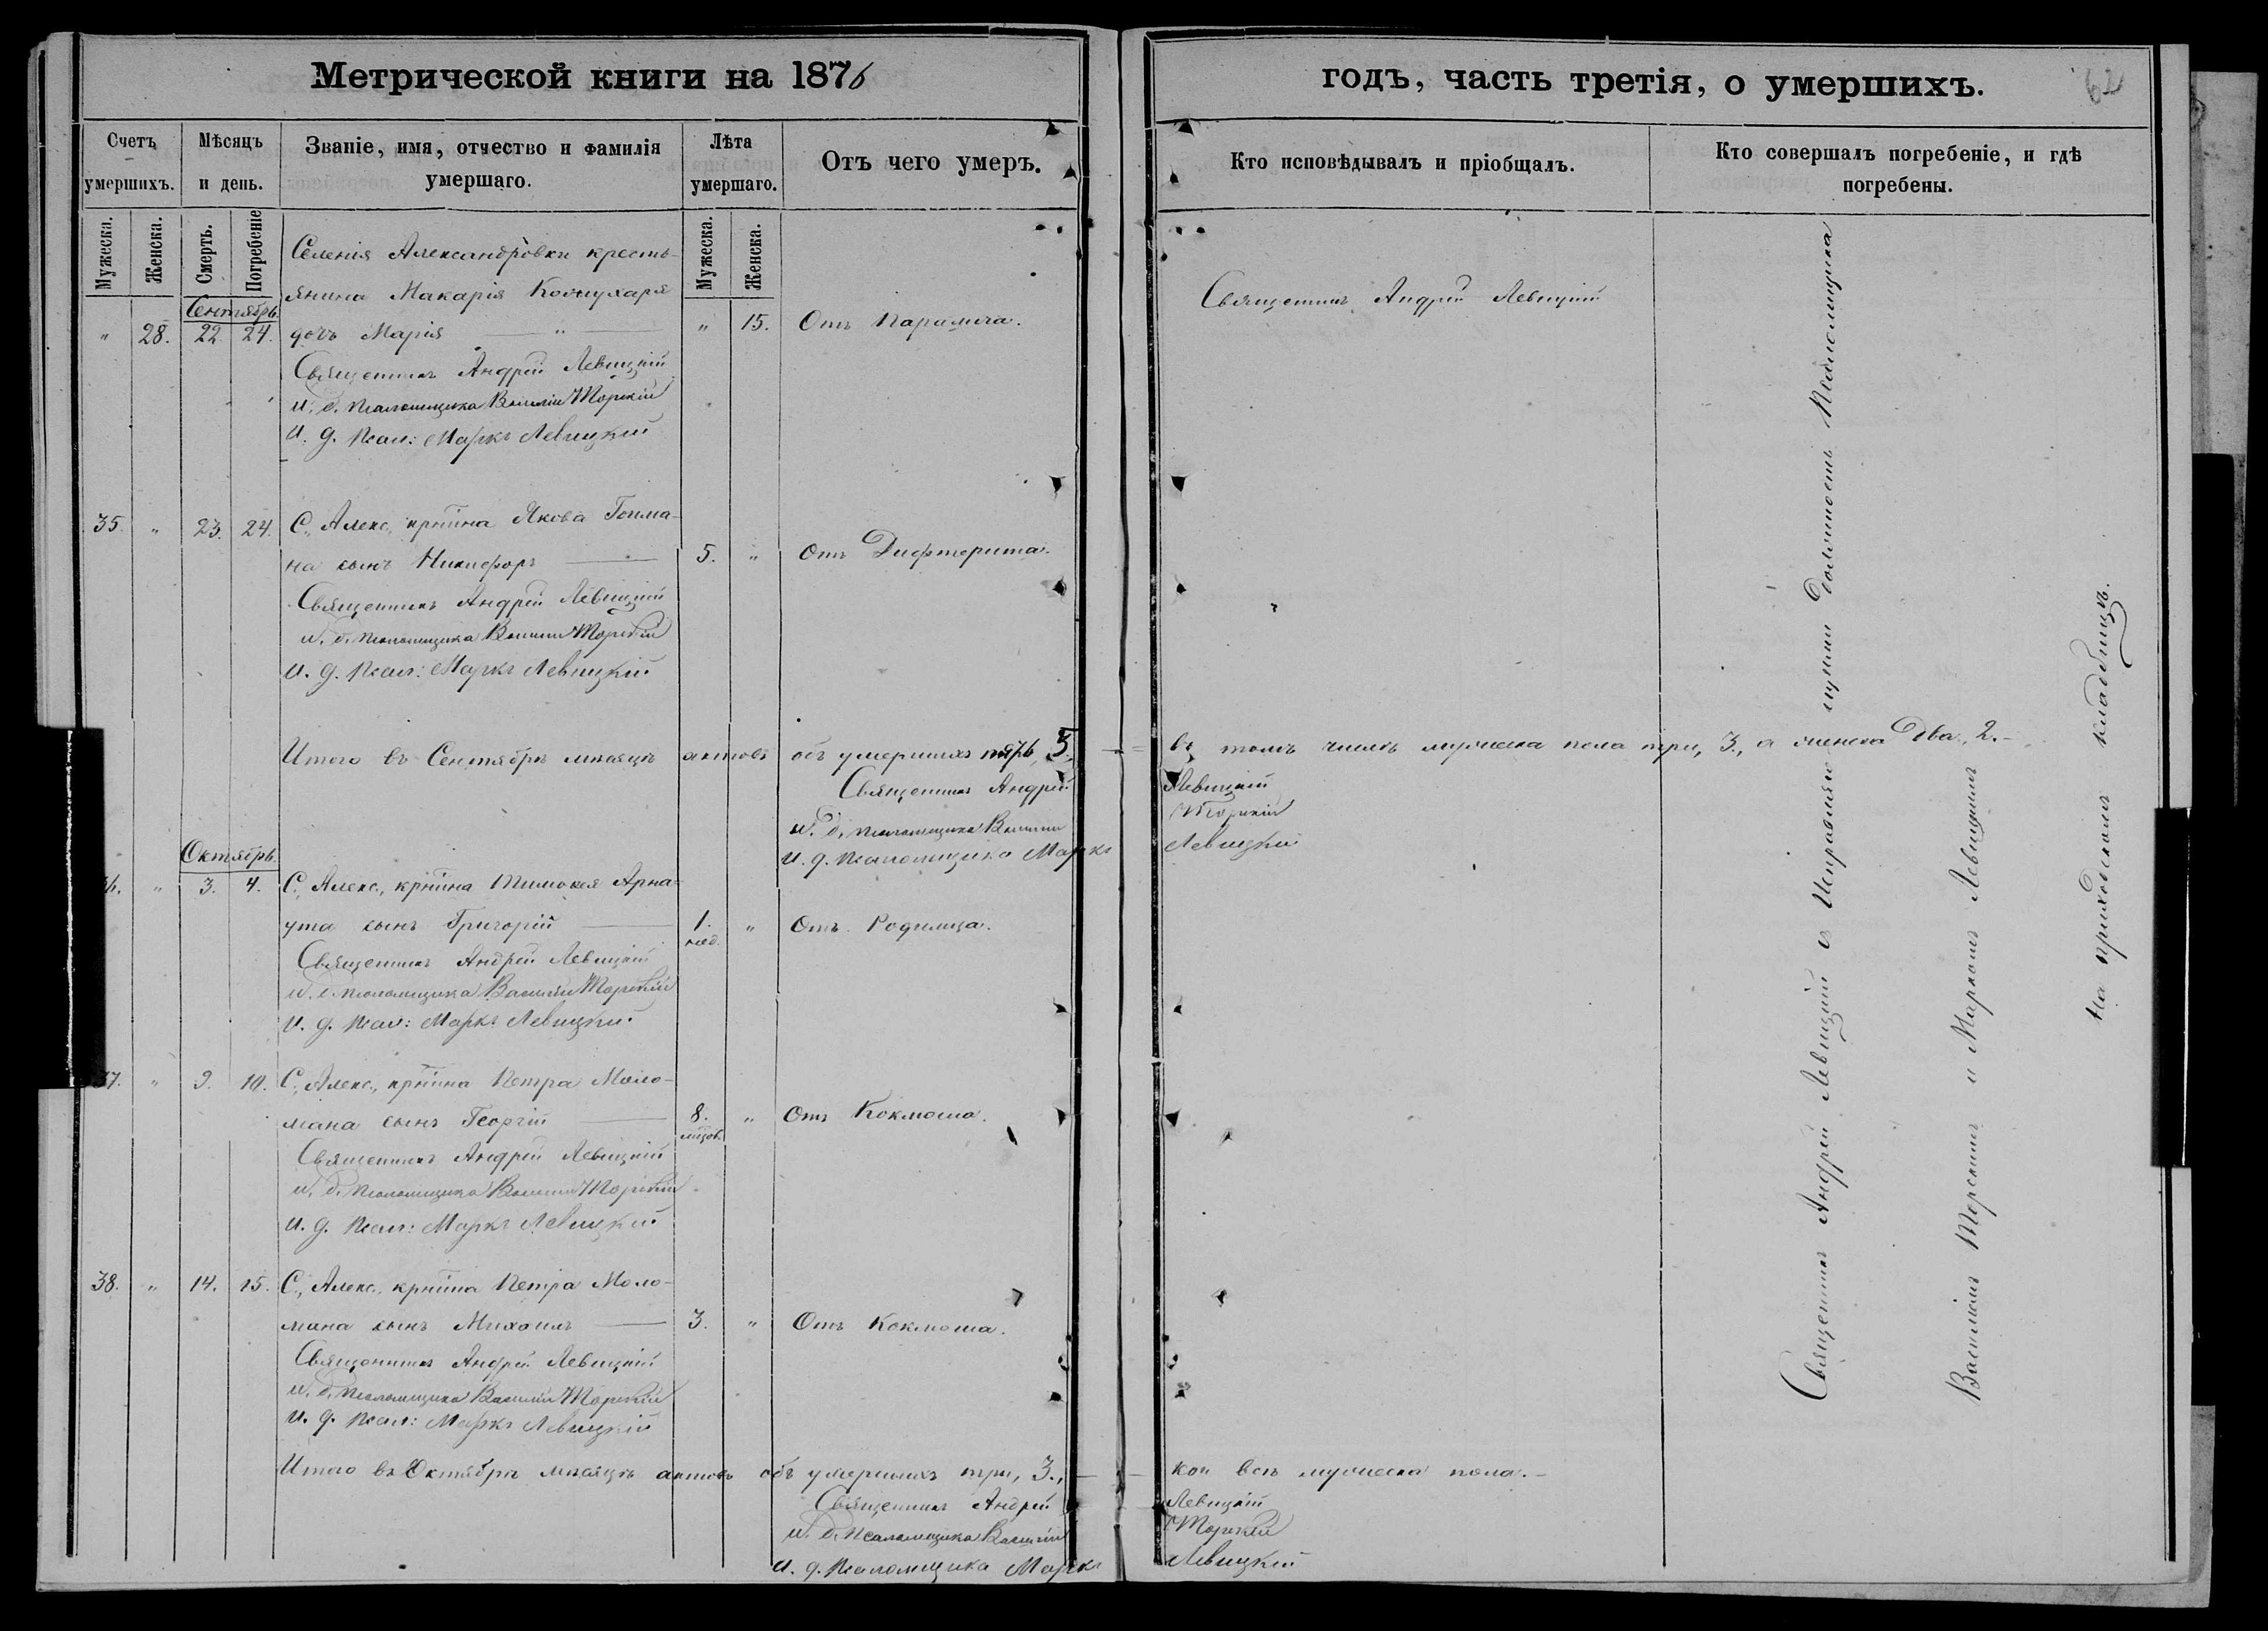 Метрической книги на 1876
годъ, часть третія, о умершихъ.
62
Счетъ умершихъ.
Мѣсяцъ и день.
Званіе, имя, отчество и фамилія умершаго.
Лѣта умершаго.
Отъ чего умеръ.
Кто исповѣдывалъ и пріобщалъ.
Кто совершалъ погребеніе, и гдѣ погребены.
Мужеска.
Женска.
Смерть.
Погребеніе
Мужеска.
Женска.
Селенія Александровки кресть-
янина Макарія
Сентябрь.
" 28. 22. 24. дочь Марія — " — " 15. Отъ Паралича.
Священникъ Андрей Левицкій
Священникъ Андрей Левицкій
и. д. псаломщика Василій Торскій
и. д. псал: Маркъ Левицкій
35. " 23. 24. С., Алекс., кр҃нина Якова Гоима-
на сынъ Никифоръ — 5. " Отъ Дифтерита.
Священникъ Андрей Левицкій
и. д. псаломщика Василій Торскій
и. д. псал: Маркъ Левицкій
Итого въ Сентябрѣ мѣсяцѣ актовъ объ умершихъ пять, 5, — въ томъ числѣ мужеска пола три, 3., а женска два, 2. —
Священникъ Андрей Левицкій
и. д. псаломщика Василій Торскій
и. д. псаломщика Маркъ Левицкій
Октябрь.
36. " 3. 4. С., Алекс., кр҃нина Тимофея Арна-
ута сынъ Григорій — 1. нед. " Отъ Родимца.
Священникъ Андрей Левицкій
и. д. псаломщика Василій Торскій
и. д. псал: Маркъ Левицкій
37. " 9. 10. С., Алекс., кр҃нина Петра Моло-
мана сынъ Георгій — 8. мѣсяц. " Отъ Коклюша.
Священникъ Андрей Левицкій
и. д. псаломщика Василій Торскій
и. д. псал: Маркъ Левицкій
38. " 14. 15. С., Алекс., кр҃нина Петра Моло-
мана сынъ Михаилъ — 3. " Отъ Коклюша.
Священникъ Андрей Левицкій
и. д. псаломщика Василій Торскій
и. д. псал: Маркъ Левицкій
Итого въ Октябрѣ мѣсяцѣ актовъ объ умершихъ три, 3., — кои всѣ мужеска пола. —
Священникъ Андрей Левицкій
и. д. псаломщика Василій Торскій
и. д. псаломщика Маркъ Левицкій
Священникъ Андрей Левицкій съ Исправляющими должность Псаломщика
Василіемъ Торскимъ и Маркомъ Левицкимъ
На приходскомъ кладбищѣ.